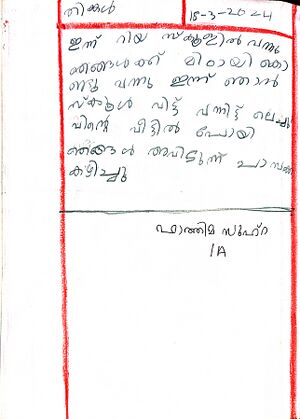 തിങ്കൾ 18-3-2024
ഇന്ന് റിയ സ്കൂളിൽ വന്നു
ഞങ്ങൾക്ക് മിഠായി കൊ
ണ്ടു വന്നു ഇന്ന് ഞാൻ
സ്കൂൾ വിട്ട് വന്നിട്ട് ലെച്ചു
വിന്റെ വീട്ടിൽ പോയി
ഞങ്ങൾ അവിടുന്ന്
കഴിച്ചു
ഫാത്തിമ സുഹ്റ
1A